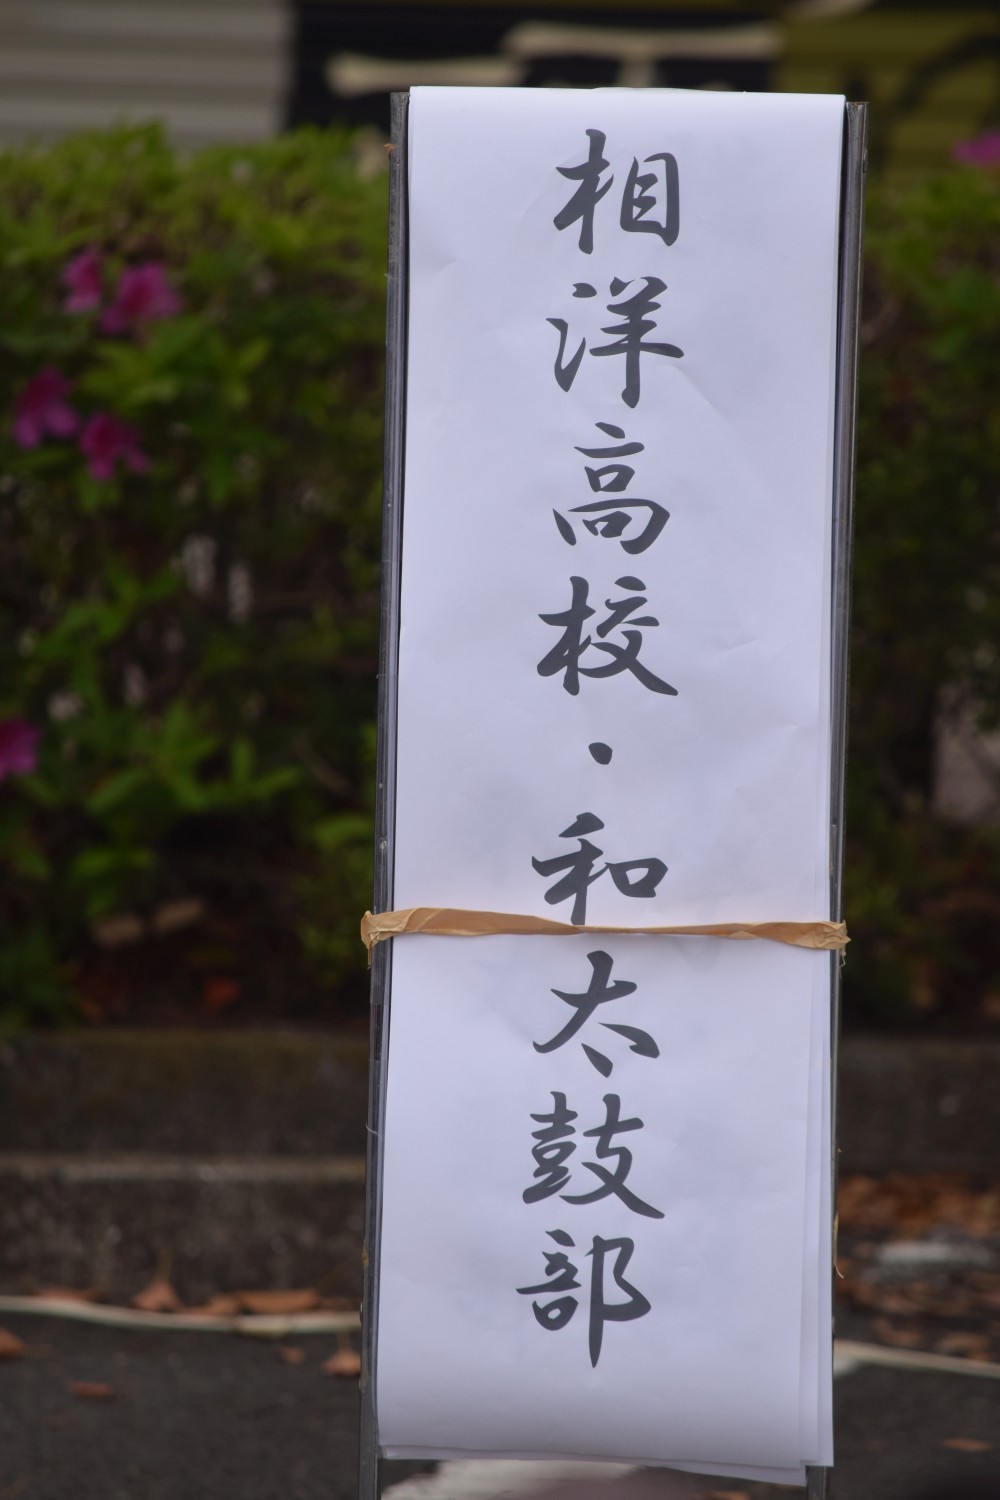 相洋高校・和太鼓部